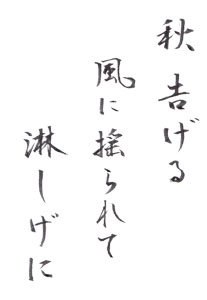 秋告げる
風に揺られて
淋しげに